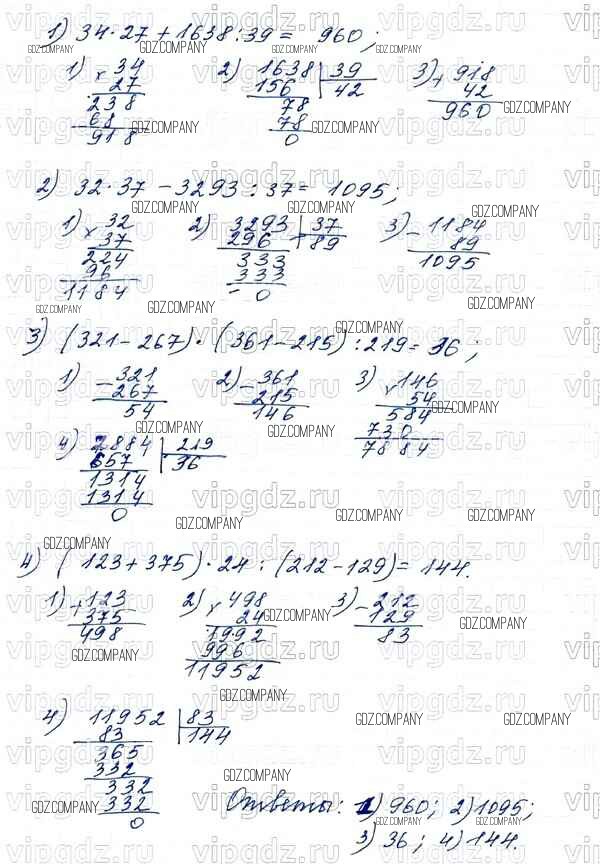 1) 34·27 + 1638 : 39 = 960;
1) × 34 2) 1638 | 39 3) + 918
27 156 42 42
238 78 960
68 78
918 0
2) 32·37 − 3293 : 37 = 1095;
1) × 32 2) 3293 | 37 3) − 1184
37 296 89 89
224 333 1095
96 333
1184 0
3) (321 − 267) · (361 − 215) : 219 = 36;
1) − 321 2) − 361 3) × 146
267 215 54
54 146 584
730
7884
4) 7884 | 219
657 36
1314
1314
0
4) (123 + 375) · 24 : (212 − 129) = 144.
1) + 123 2) × 498 3) − 212
375 24 129
498 1992 83
996
11952
4) 11952 | 83
83 144
365
332
332
332
0
Ответы: 1) 960; 2) 1095;
3) 36; 4) 144.
vipgdz.ru
GDZ.COMPANY